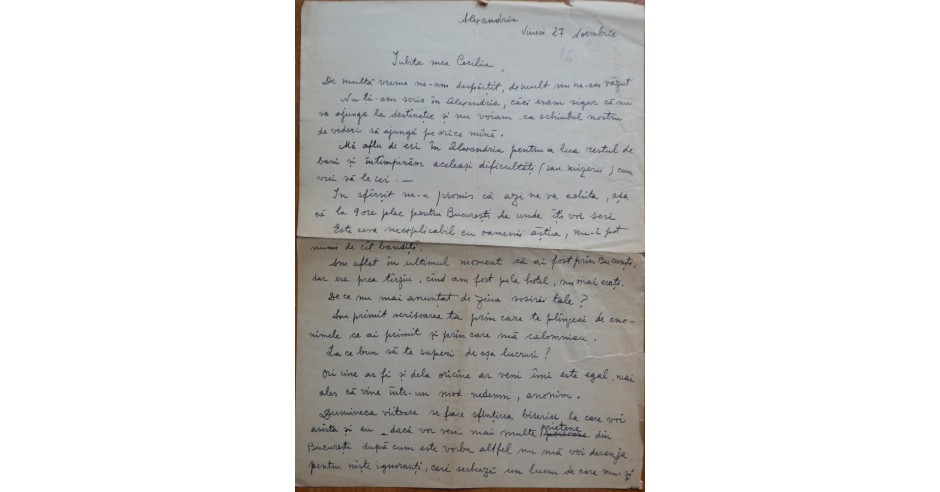 Alexandria
Vineri 27 Noembrie
16
Iubita mea Cecilia,
De multă vreme ne-am despărțit, demult nu ne-am văzut
Nu ți-am scris în Alexandria, căci eram sigur că nu
va ajunge la destinație și nu voiam ca schimbul nostru
de vederi să ajungă pe orice mînă.
Mă aflu de eri în Alexandria pentru a lua restul de
bani și întimpinăm aceleași dificultăți (sau mizerii) cum
vrei să le iei. —
In sfîrșit ne-a promis că azi ne va achita, așa
că la 9 ore plec pentru București de unde îți voi scri
Este ceva inexplicabil cu oamenii ăștia, nu-i pot
numi de cît bandiți.
Am aflat în ultimul moment că ai fost prin București,
dar era prea tîrziu, cînd am fost pela hotel, nu mai erați.
De ce nu mai anunțat de ziua sosirii tale?
Am primit scrisoarea ta prin care te plîngeai de ano-
nimele ce ai primit și prin care mă calomniau.
La ce bun să te superi de așa lucruri?
Ori cine ar fi și dela oricine ar veni îmi este egal, mai
ales că vine într-un mod nedemn, anonim.
Dumineca viitoare se face sfințirea bisericii la care voi
asista și eu - dacă vor veni mai multe prietene din
București după cum este vorba altfel nu mă voi deranja
pentru niște ignoranți, cari serbează un lucru de care nu-și